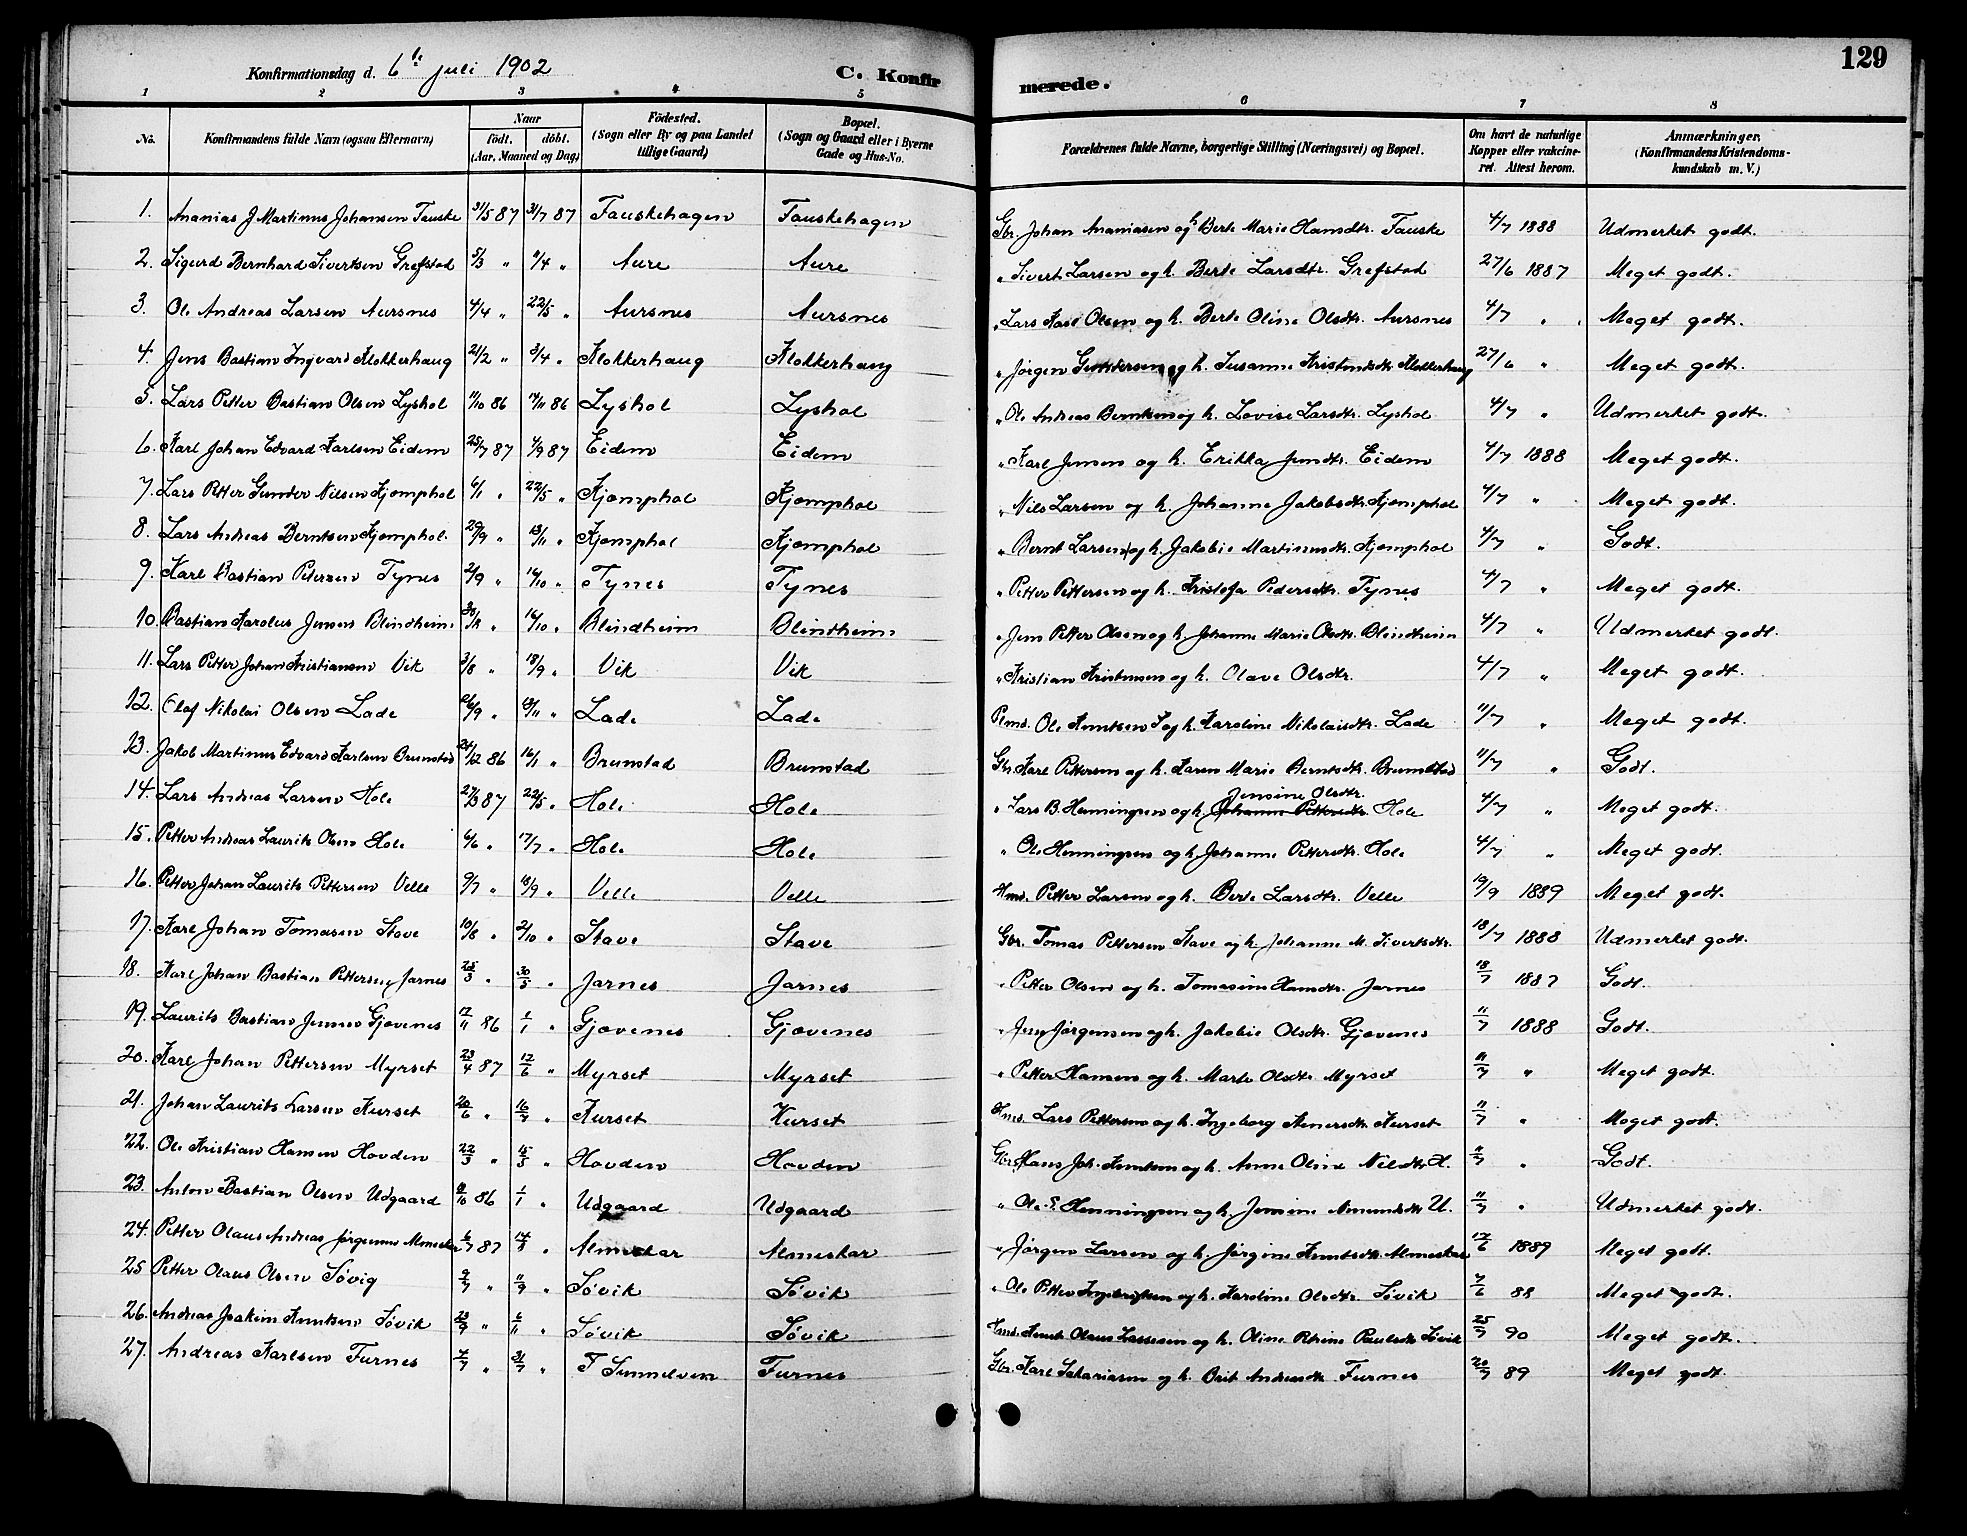 129
Konfirmationsdag d. 6te juli 1902 C. Konfirmerede.
1 2 3 4 5 6 7 8
No. Konfirmandens fulde Navn (ogsaa Efternavn) Naar födt. döbt. (Aar, Maaned og Dag) Födested. (Sogn eller By og paa Landet tillige Gaard) Bopæl. (Sogn og Gaard eller i Byerne Gade og Hus-No. Forældrenes fulde Navne, borgerlige Stilling (Næringsvei) og Bopæl. Om havt de naturlige Kopper eller vakcineret. Attest herom. Anmærkninger. (Konfirmandens Kristendomskundskab m. V.)
1. Ananias J Martinus Johansen Fauske 31/5 87 31/7 87 Fauskehagen Fauskehagen Gbr. Johan Ananiasen og h Berte Marie Hansdtr. Fauske 4/7 1888 Udmerket godt.
2. Sigurd Bernhard Sivertsen Grefstad 5/3 " /4 " Aure Aure " Sivert Larsen og h. Berte Larsdtr. Grefstad 27/6 1887 Meget godt.
3. Ole Andreas Larsen Aursnes 4/4 " 22/5 " Aursnes Aursnes " Lars Karl Olsen og h. Berte Oline Olsdtr. Aursnes 4/7 " Meget godt.
4. Jens Bastian Ingvard Klokkerhaug 21/2 " 3/4 " Klokkerhaug Klokkerhaug " Jørgen og h. Susanne Klokkerhaug 27/6 " Meget godt.
5. Lars Petter Bastian Olsen Lyshol 11/10 86 14/11 86 Lyshol Lyshol " Ole Andreas Berntsen og h. Lovise Larsdtr. Lyshol 4/7 " Udmerket godt.
6. Karl Johan Edvard Karlsen Eidem 25/7 87 4/9 87 Eidem Eidem " Karl Jensen og h. Erikka Jensdtr. Eidem 4/7 1888 Meget godt.
7. Lars Petter Gunder Nilsen Kjømphol 6/1 " 22/5 " Kjømphol Kjømphol " Nils Larsen og h. Johanne Jakobsdtr. Kjømphol 4/7 " Meget godt.
8. Lars Andreas Berntsen Kjømphol. 29/9 " 13/11 " Kjømphol Kjømphol " Bernt Larsen og h. Jakobie Martinusdtr. Kjømphol 4/7 " Godt.
9. Karl Bastian Petersen Tynes 2/9 " 16/10 " Tynes Tynes " Petter Pettersen og h. Kristofa Pedersdtr. Tynes 4/7 " Meget godt.
10. Bastian Karolus Jensen Blindheim 30/8 " 16/10 " Blindheim Blindheim " Jens Petter Olsen og h. Johanne Marie Olsdtr. Blindheim 4/7 " Udmerket godt.
11. Lars Petter Johan Kristiansen Vik 3/8 " 18/9 " Vik Vik " Kristian Kristensen og h. Olave Olsdtr. 4/7 " Meget godt.
12. Olaf Nikolai Olsen Lade 26/9 " 13/11 " Lade Lade Plms. Ole Knutsen og h. Karoline Nikolaisdtr. Lade 11/7 " Meget godt.
13. Jakob Martinus Edvard Karlsen Brunstad 24/12 86 16/1 " Brunstad Brunstad Gbr. Karl Pettersen og h. Karen Marie Berntsdtr. Brunstad 11/7 " Godt.
14. Lars Andreas Larsen Hole 27/3 87 22/5 " Hole Hole " Lars B. Henningsen og h. Jensine Olsdtr. Johanne Pettersdtr. Hole 4/7 " Meget godt.
15. Petter Andreas Laurits Olsen Hole 6/6 " 17/7 " Hole Hole " Ole Henningsen og h. Johanne Pettersdtr. Hole 4/7 " Meget godt.
16. Petter Johan Laurits Pettersen Velle 9/7 " 18/9 " Velle Velle Hms. Petter Larsen og h. Berte Larsdtr. Velle 19/9 1889 Meget godt.
17. Karl Johan Tomasen Stave 10/8 " 2/10 " Stave Stave Gbr. Tomas Pettersen Stave og h. Johanne M. Sivertsdtr. 18/7 1888 Udmerket godt.
18. Karl Johan Bastian Pettersen Jarnes 25/3 " 30/5 " Jarnes Jarnes " Petter Olsen og h. Tomasine Hansdtr. Jarnes 18/7 1887 Godt.
19. Laurits Bastian Jensen Gjævenes 17/11 86 1/1 " Gjævenes Gjævenes " Jens Jørgensen og h. Jakobie Olsdtr. Gjævenes 11/7 1888 Godt.
20. Karl Johan Pettersen Myrset 23/4 87 12/6 " Myrset Myrset " Petter Hansen og h. Marte Olsdtr. Myrset 11/7 " Meget godt.
21. Johan Laurits Larsen Kurset 20/6 " 10/7 " Kurset Kurset Hms. Lars Pettersen og h. Ingeborg Kurset 11/7 " Meget godt.
22. Ole Kristian Hansen Hovden 22/3 " 15/5 " Hovden Hovden Gbr. Hans Joh. Knutsen og h. Anne Oline Nilsdtr. H. 11/7 " Godt.
23. Anton Bastian Olsen Udgaard /10 86 1/1 " Udgaard Udgaard " Ole E. Henningsen og h. Jensine Amundsdtr. U. 11/7 " Udmerket godt.
24. Petter Olaus Andreas Jørgensen Almeskar 6/7 87 14/8 " Almeskar Almeskar " Jørgen Larsen og h. Jørgine Knutsdtr. Almeskar 12/6 1889 Meget godt.
25 Petter Olaus Olsen Søvig 9/7 " 11/9 " Søvik Søvik " Ole Petter og h. Karoline Olsdtr. Søvik 7/6 88 Meget godt.
26. Andreas Joakim Knutsen Søvik 23/9 " 6/11 " Søvik Søvik Hms. Knut Olaus Lassesen og h. Oline Paulsdtr. Søvik 25/7 90 Meget godt.
27. Andreas Karlsen Furnes 7/7 " 31/7 " F Sunnelven Furnes Gbr. Karl Sakariasen og h. Brit Andersdtr. Furnes 20/7 89 Meget godt.